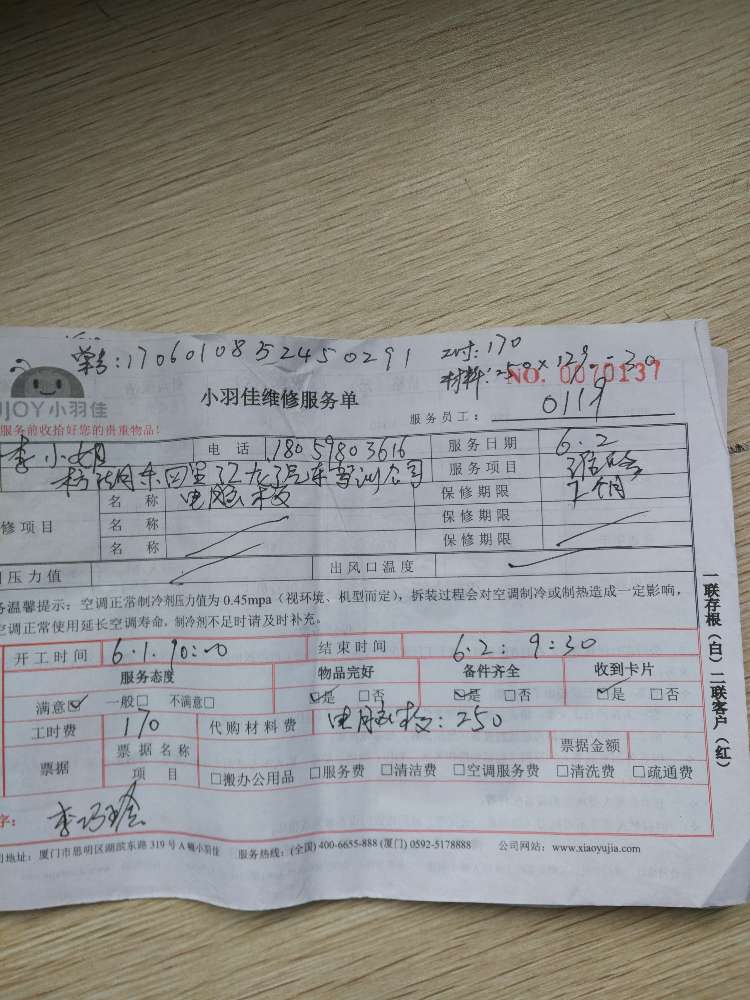 单号:1706010852450291 工时:170
材料:250×12%=30
NO. 0070137
UJOY小羽佳 小羽佳维修服务单 服务员工: 0119
服务前收拾好您的贵重物品!
李小姐 电话 18059803616 服务日期 6.2
服务项目
名称 电脑板 保修期限 1个月
修项目 名称 保修期限
名称 保修期限
压力值 出风口温度
务温馨提示:空调正常制冷剂压力值为 0.45mpa(视环境、机型而定),拆装过程会对空调制冷或制热造成一定影响,
空调正常使用延长空调寿命,制冷剂不足时请及时补充。
开工时间 6.1. 结束时间 6.2:9:30
服务态度 物品完好 备件齐全 收到卡片
满意☑ 一般□ 不满意□ ☑是 □否 ☑是 □否 ☑是 □否
工时费 170 代购材料费 电脑板:250
票据 票据名称 票据金额
项目 □搬办公用品 □服务费 □清洁费 □空调服务费 □清洗费 □疏通费
字:
司地址:厦门市思明区湖滨东路 319 号 A 幢小羽佳 服务热线:(全国)400-6655-888 (厦门) 0592-5178888 公司网站:www.xiaoyujia.com
一联存根(白)二联客户(红)